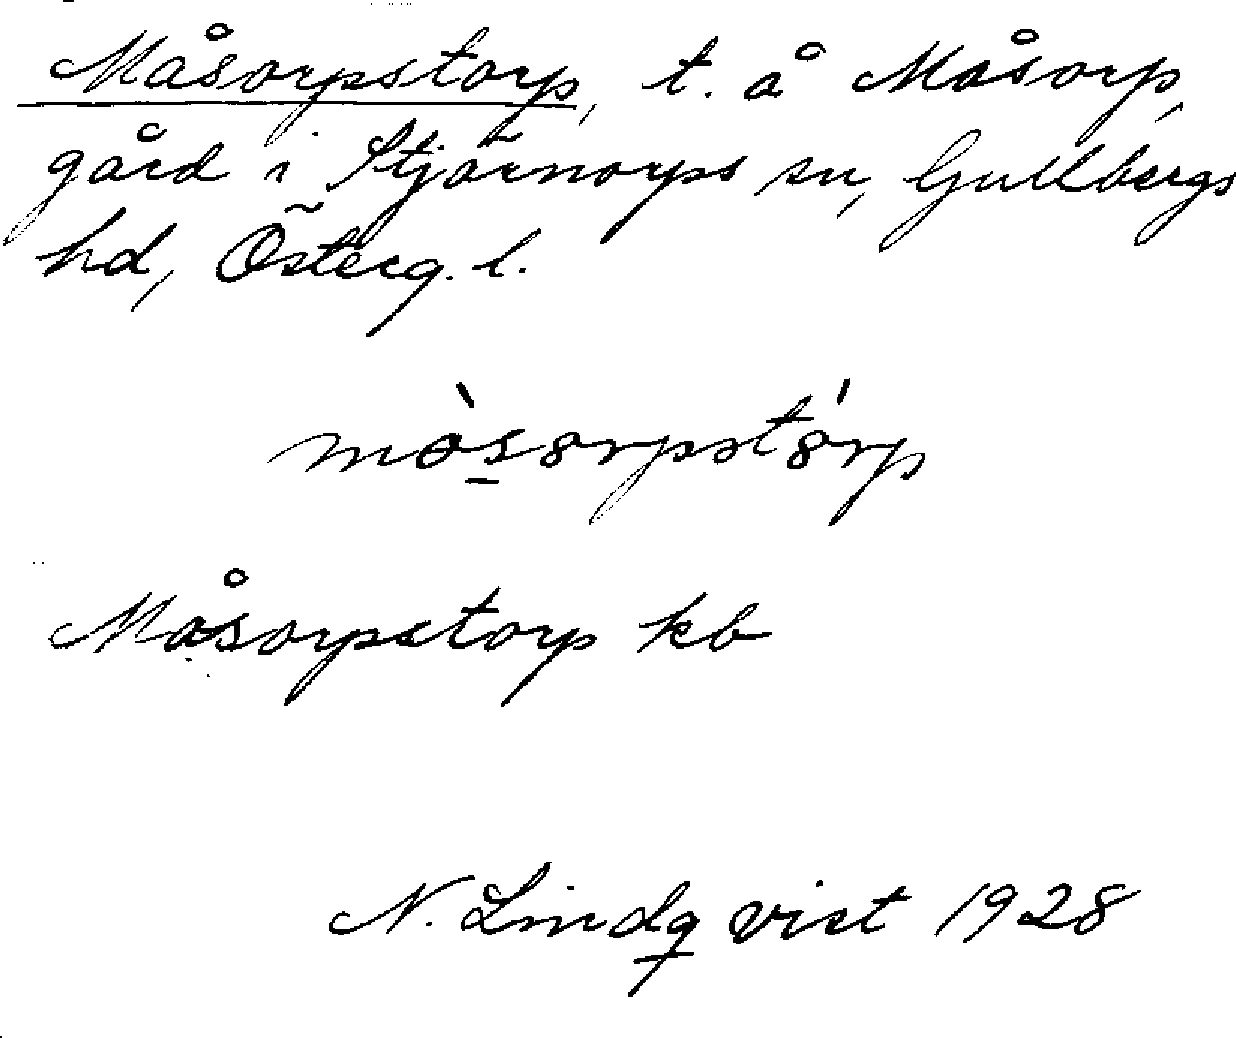 Måsorpstorp, t. å Måsorp,
gård i Stjärnorps sn, Gullbergs
hd, Österg. l.
mòsorpstórp
Måsorpstorp kb
N. Lindqvist 1928